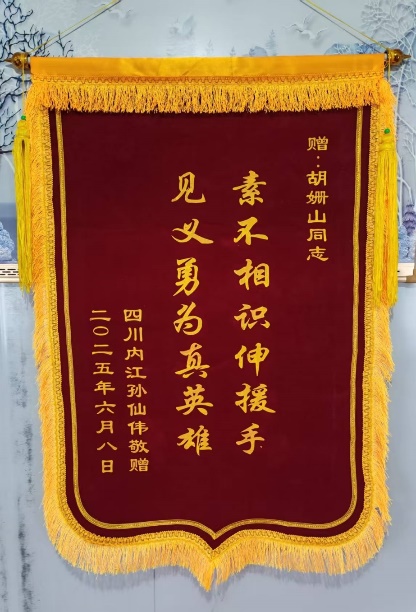 赠：胡姗山同志
素不相识伸援手
见义勇为真英雄
四川内江孙仙伟敬赠
二〇二五年六月八日